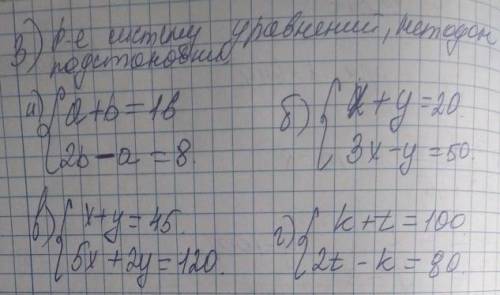 3) р-е систему уравнений, методом
подстановки
а) { a+b=16
2b-a=8.
б) { x+y=20.
3x-y=50.
в) { x+y=45.
5x+2y=120.
г) { k+t=100
2t-k=80.